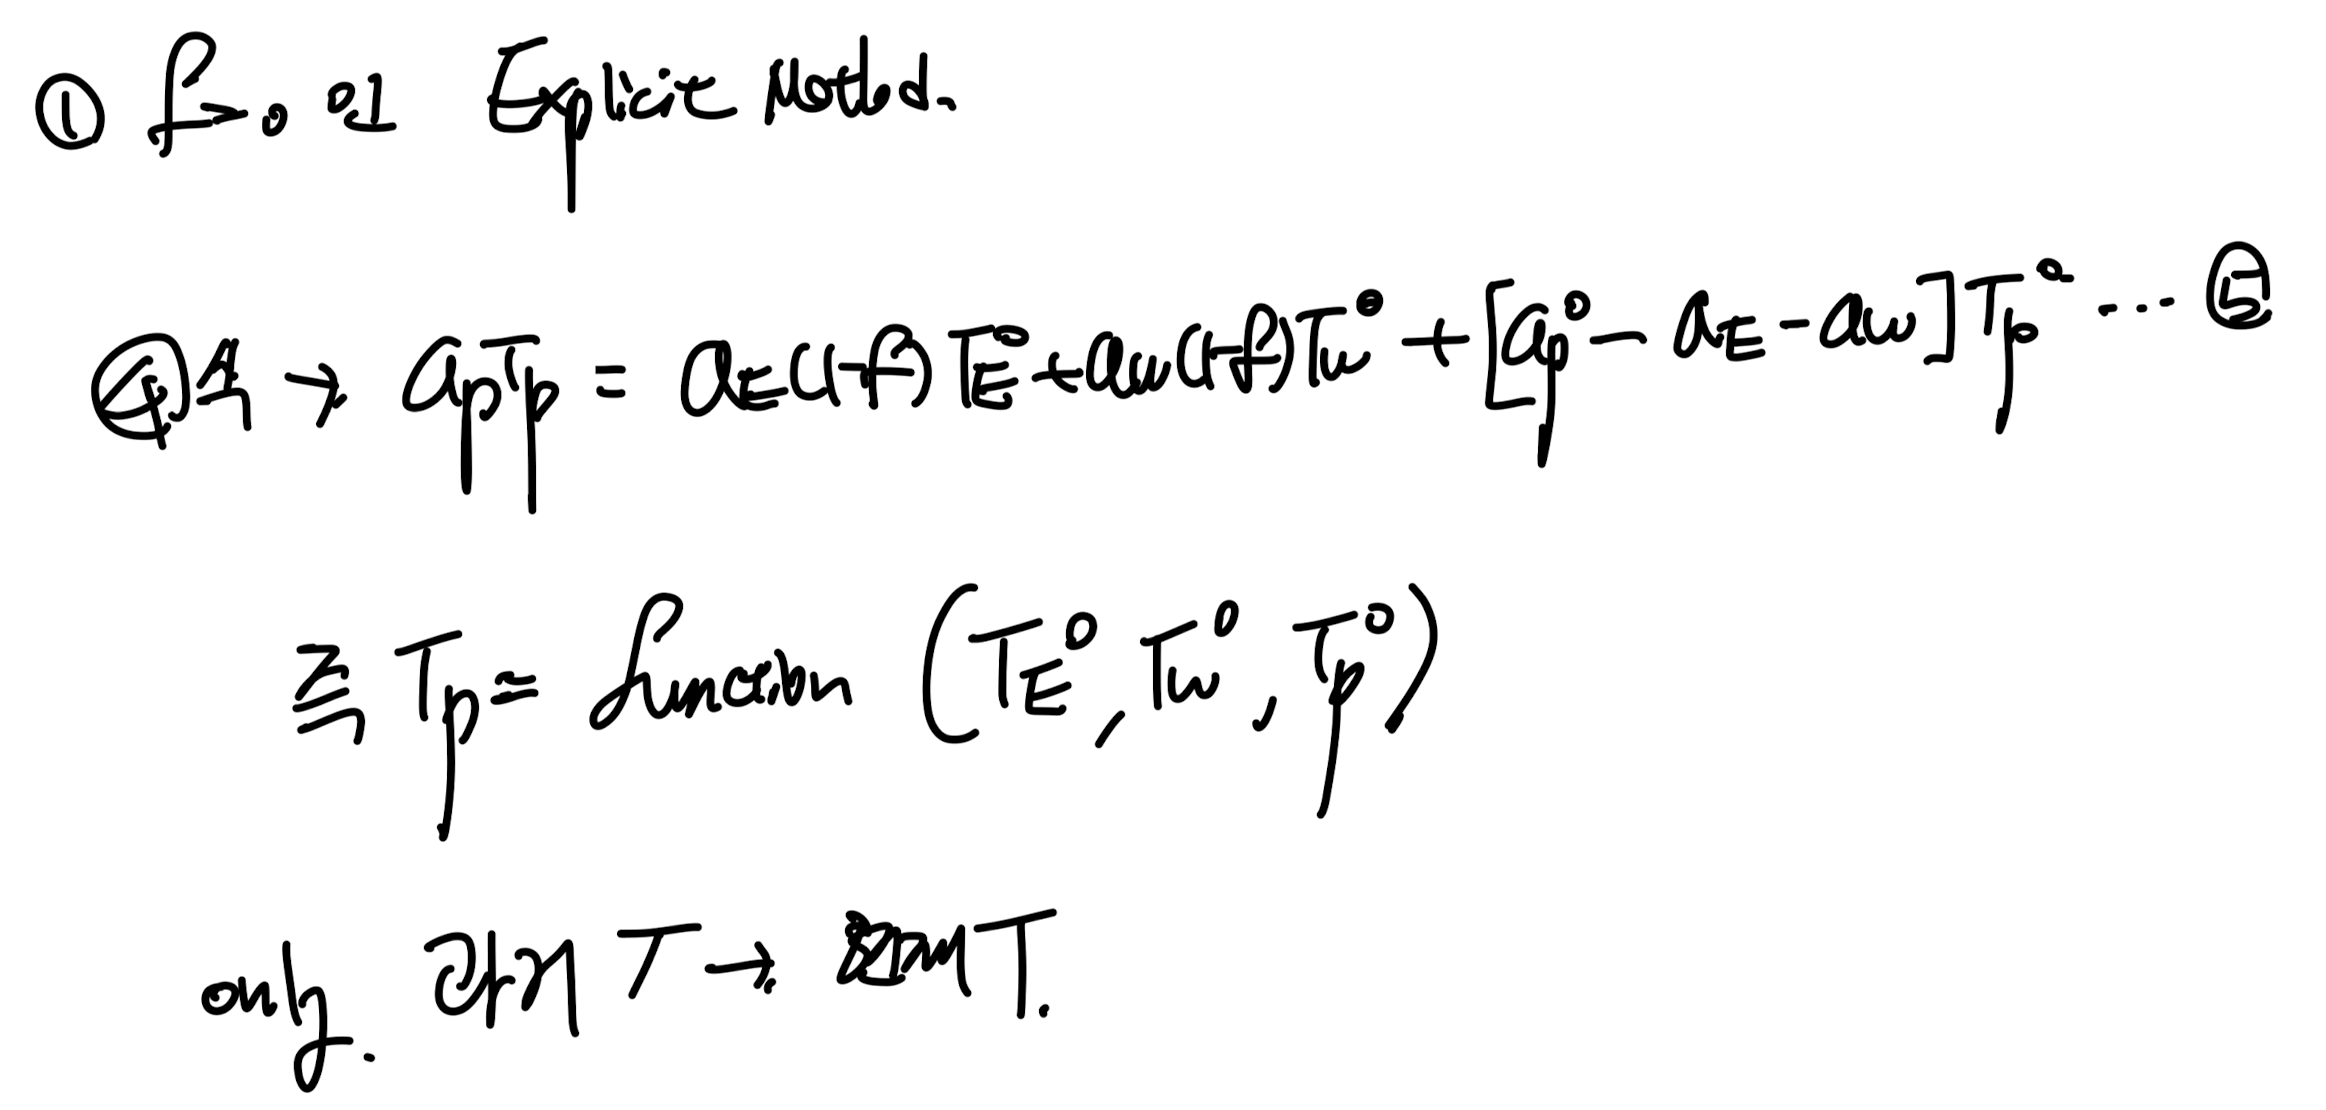 ① f=0 인 Explicit Method.
④식 → a_P T_P = a_E(1-f) T_E° + a_W(1-f) T_W° + [a_P° - a_E - a_W] T_P° ... ⑤
즉 T_P = function (T_E°, T_W°, T_P°)
only. 과거 T → T.